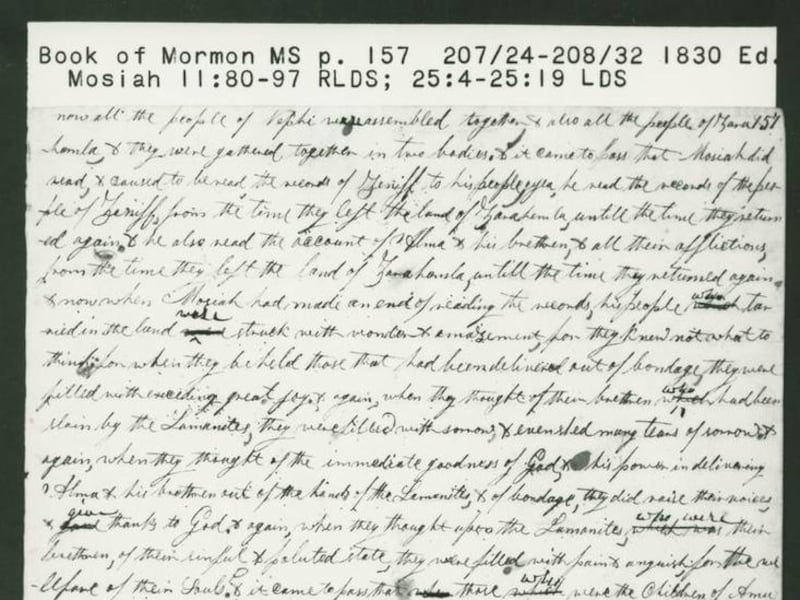 Book of Mormon MS p. 157 207/24-208/32 1830 Ed.
Mosiah 11:80-97 RLDS; 25:4-25:19 LDS
now all the people of Nephi were assembled together & also all the people of Zara 157
hemla, & they were gathered together in two bodies, & it came to pass that Mosiah did
read, & caused to be read the records of Zeniff to his people yea, he read the records of the peo-
ple of Zeniff, from the time they left the land of Zarahemla, untill the time they return
ed again, & he also read the account of Alma & his brethren, & all their afflictions,
from the time they left the land of Zarahemla, untill the time they returned again
& now when Mosiah had made an end of reading the records, his people who which tar
ried in the land were struck with wonder & amazement for they knew not what to
think, for when they beheld those that had been delivered out of bondage, they were
filled with exceeding great joy, & again, when they thought of their brethren who which had been
slain by the Lamanites, they were filled with sorrow, & even shed many tears of sorrow, &
again, when they thought of the immediate goodness of God, & his power in delivering
Alma & his brethren out of the hands of the Lamanites, & of bondage, they did raise their voices,
& give thanks to God, & again, when they thought upon the Lamanites, who were which was their
brethren, of their sinful & poluted state, they were filled with pain & anguish, for the we
llfare of their Souls, & it came to pass that those who which were the Children of Amu